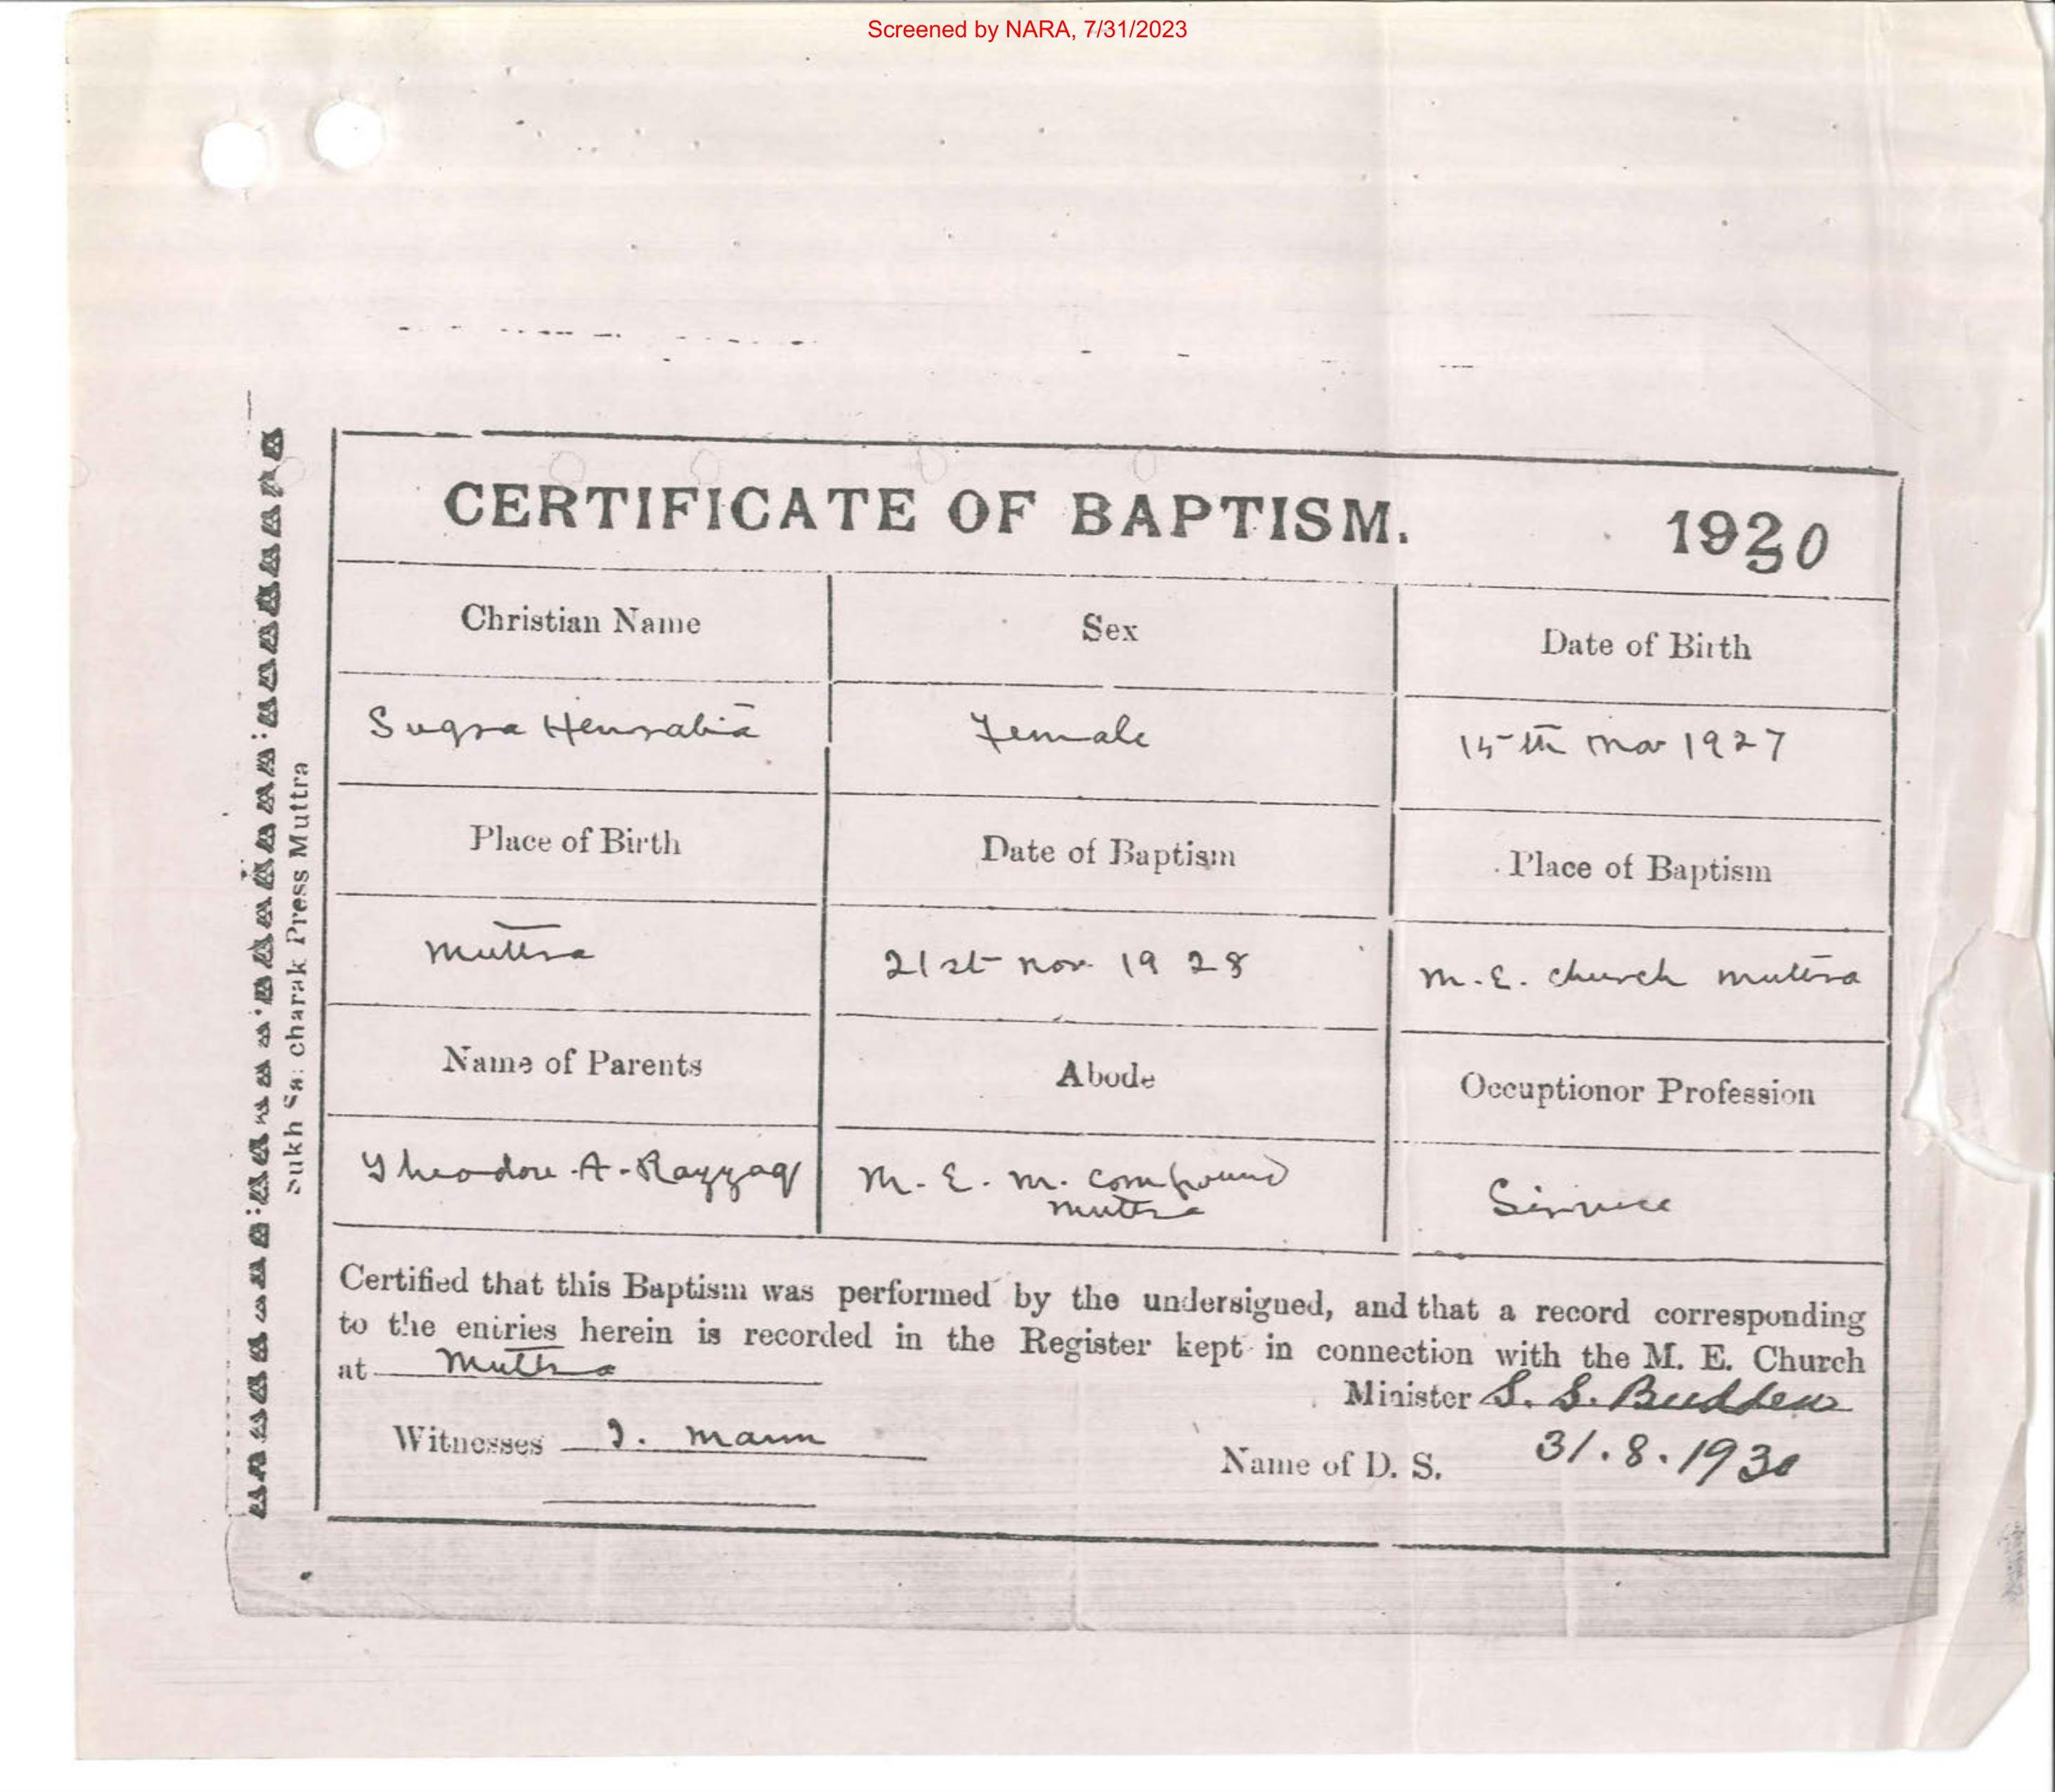 Screened by NARA, 7/31/2023
CERTIFICATE OF BAPTISM. 1930
Christian Name Sex Date of Birth
Sugra Henrabia Female 15th Mar 1927
Place of Birth Date of Baptism Place of Baptism
Muttra 21st Nov 1928 M.E. Church Muttra
Name of Parents Abode Occuptionor Profession
Theodore A. Razzaq M.E.M. Compound
Muttra
Certified that this Baptism was performed by the undersigned, and that a record corresponding
to the entries herein is recorded in the Register kept in connection with the M. E. Church
at Muttra
Minister S. S. Budden
Witnesses Mann
Name of D. S. 31.8.1930
charak Press Muttra